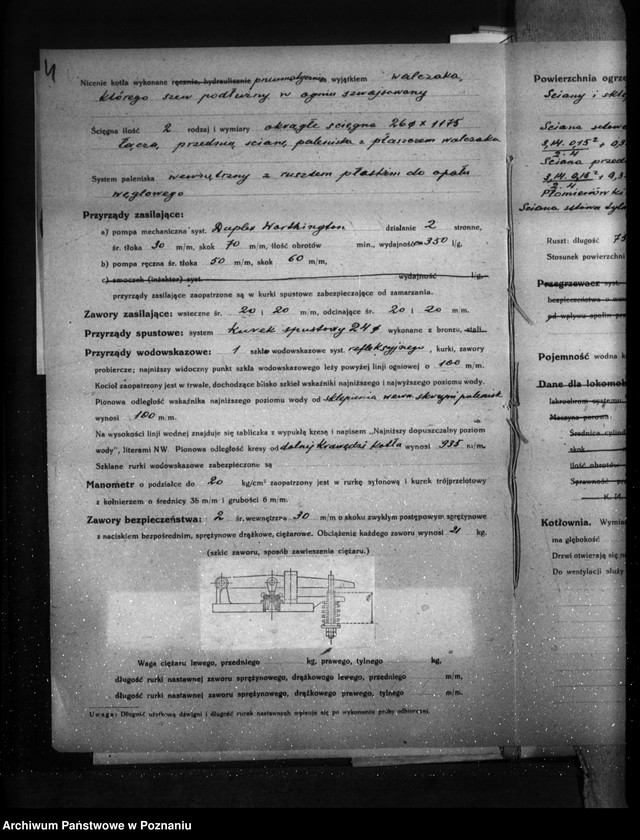 4
Nicenie kotła wykonane ręcznie, hydraulicznie pneumatycznie wyjątkiem walczaka,
którego szew podłużny w ogniu szwajsowany
Ścięgna ilość 2 rodzaj i wymiary okrągłe ścięgna 26 ⌀ x 1175
łączą przednią ścianę paleniska z płaszczem walczaka
System paleniska wewnętrzny z rusztem płaskim do opału
węglowego
Przyrządy zasilające:
a) pompa mechaniczna syst. Duplex Worthington działanie 2 stronne,
śr. tłoka 30 m/m, skok 70 m/m, ilość obrotów min., wydajność 350 l/g,
b) pompa ręczna śr. tłoka 50 m/m, skok 60 m/m,
c) smoczek (inżektor) syst. wydajność l/g.
przyrządy zasilające zaopatrzone są w kurki spustowe zabezpieczające od zamarzania.
Zawory zasilające: wsteczne śr. 20 i 20 m/m, odcinające śr. 20 i 20 m/m.
Przyrządy spustowe: system Kurek spustowy 24 ⌀ wykonane z bronzu, stali.
Przyrządy wodowskazowe: 1 szkło wodowskazowe syst. refleksyjnego, kurki, zawory
probiercze; najniższy widoczny punkt szkła wodowskazowego leży powyżej linji ogniowej o 100 m/m.
Kocioł zaopatrzony jest w trwałe, dochodzące blisko szkieł wskaźniki najniższego i najwyższego poziomu wody.
Pionowa odległość wskaźnika najniższego poziomu wody od sklepienia wewn. skrzyni palenisk
wynosi 100 m/m.
Na wysokości linji wodnej znajduje się tabliczka z wypukłą kresą i napisem „Najniższy dopuszczalny poziom
wody", literami NW. Pionowa odległość kresy od dolnej krawędzi kotła wynosi 935 m/m.
Szklane rurki wodowskazowe zabezpieczone są
Manometr o podziałce do 20 kg/cm² zaopatrzony jest w rurkę syfonową i kurek trójprzelotowy
z kołnierzem o średnicy 35 m/m i grubości 6 m/m.
Zawory bezpieczeństwa: 2 śr. wewnętrzna 30 m/m o skoku zwykłym postępowym, sprężynowe
z naciskiem bezpośrednim, sprężynowe drążkowe, ciężarowe. Obciążenie każdego zaworu wynosi 21 kg.
(szkic zaworu, sposób zawieszenia ciężaru.)
Waga ciężaru lewego, przedniego kg, prawego, tylnego kg,
długość rurki nastawnej zaworu sprężynowego, drążkowego lewego, przedniego m/m,
długość rurki nastawnej zaworu sprężynowego, drążkowego prawego, tylnego m/m.
Uwaga: Długość użytkową dźwigni i długość rurek nastawnych wpisuje się po wykonaniu próby odbiorczej.
Powierzchnia ogrze
Ściany i skl
Ściana sitow
3,14. 0,75² + 0,3
2.4
Ściana przed
2.4
Płomieniówki
Ściana sitowa
Ruszt: długość 75
Stosunek powierzchni
Przegrzewacz syst
bezpieczeństwa o
od wpływu spalin
Pojemność wodna k
Dane dla lokomob
Maszyna parowa
Średnica cylind
skok
ilość obrotów
Sprawność
K. M.
Kotłownia. Wymiar
ma głębokość
Drzwi otwierają się n
Do wentylacji służy
Archiwum Państwowe w Poznaniu